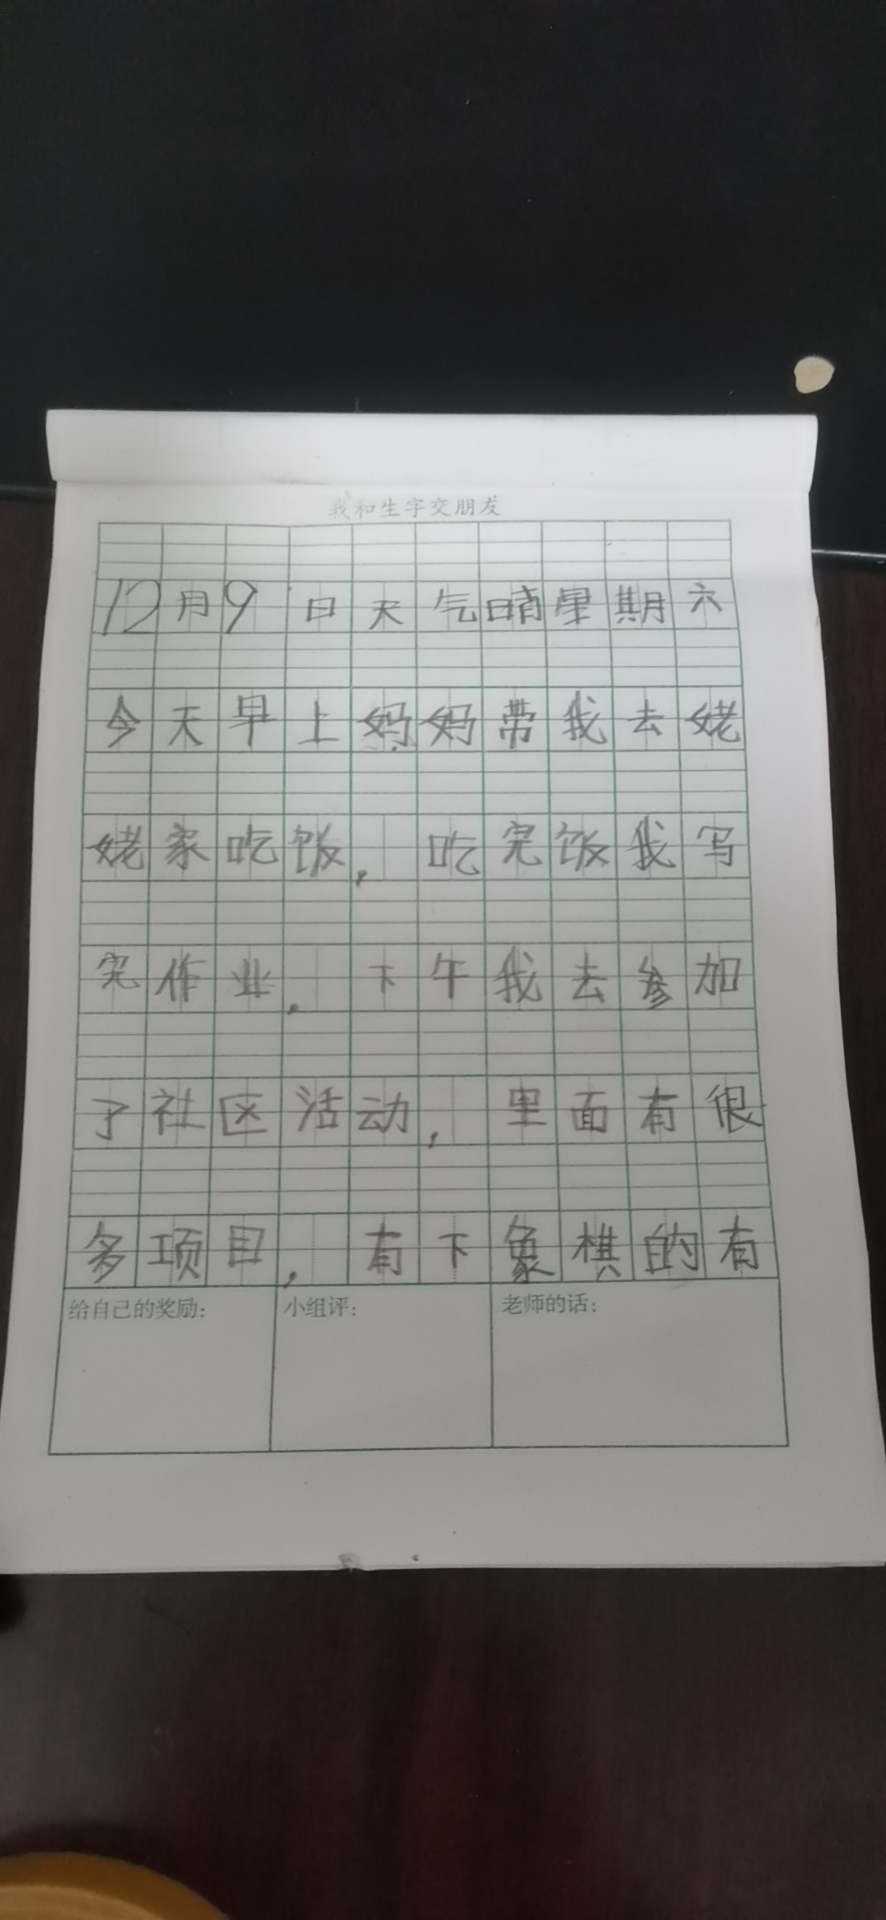 我和生字交朋友
12月9日天气晴星期六
今天早上妈妈带我去姥
姥家吃饭，吃完饭我写
完作业，下午我去参加
了社区活动，里面有很
多项目，有下象棋的有
给自己的奖励： 小组评： 老师的话：